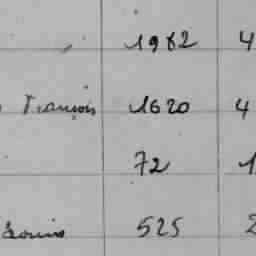 1962 4
François 1620 4
72 1
Louis 525 2